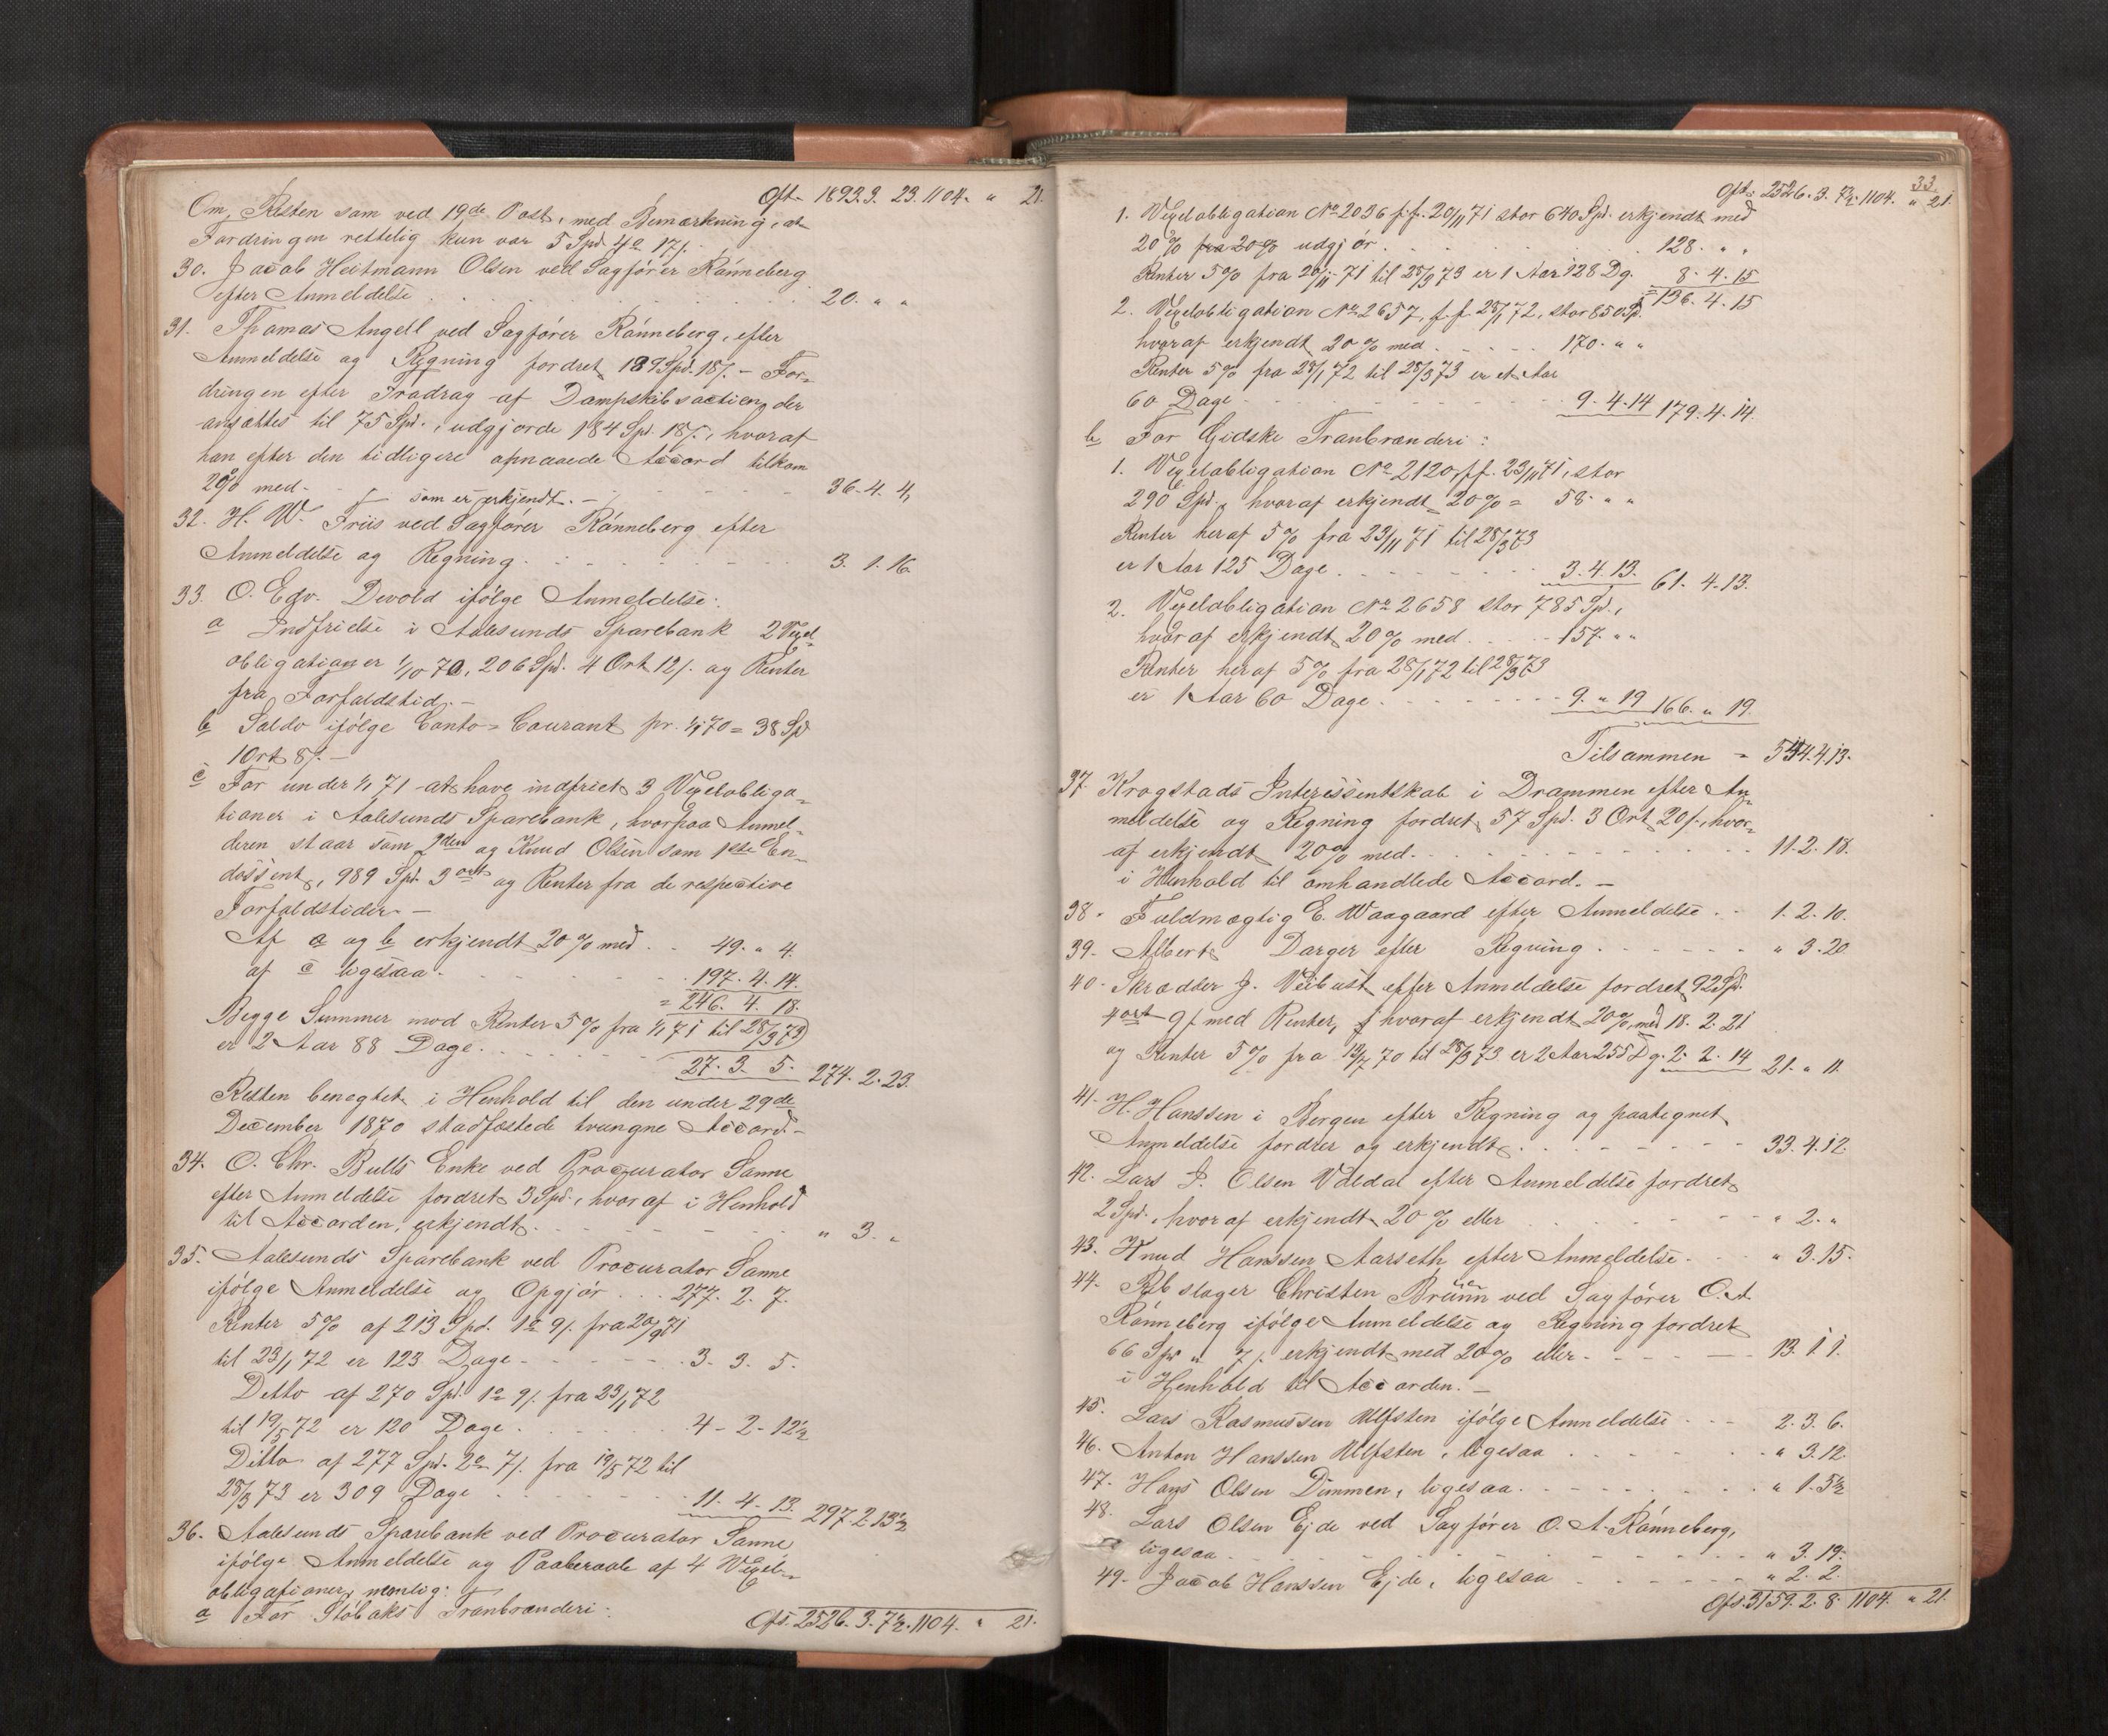 Oft. 1893.3. 23. 1104. " 21.
Om, Resten som ved 19de Post, med Bemærkning, at
Fordringen rettelig kun var 5 Spd. 4o 17/.
30. Jacob Heitmann Olsen ved Sagfører Rønneberg
efter Anmeldelse . . . 20. " "
31. Thomas Angell ved Sagfører Rønneberg, efter
Anmeldelse og Regning fordret 189 Spd. 18/. – For-
dringen efter Fradrag af Dampskibsactien, der
ansættes til 75 Spd., udgjorde 184 Spd. 18/., hvoraf
han efter den tidligere opnaaede Accord tilkom
20% med . . . 36. 4. 4,
som er erkjendt. –
32. H. W. Friis ved Sagfører Rønneberg efter
Anmeldelse og Regning . . . 3. 1. 16.
33. O. Edv. Devold ifølge Anmeldelse:
a Indfrielse i Aalesunds Sparebank 2 Vexel-
obligationer 1/10 70, 206 Spd. 4 Ort 12/. og Renter
fra Forfaldstid. –
b Saldo ifølge Conto-Courant pr. 1/1 70 = 38 Spd
1 Ort 8/. –
c For under 1/1 71 at have indfriet 3 Vexelobliga-
tioner i Aalesunds Sparebank, hvorpaa Anmel-
deren staar som 2den og Knud Olsen som 1ste En-
dossent, 989 Spd. 3 ort og Renter fra de respective
Forfaldstider. –
Af a og b erkjendt 20% med . . 49. " 4.
af c ligesaa . . . 197. 4. 14.
= 246. 4. 18.
Begge Summer mod Renter 5% fra 1/1 71 til 28/3 73
er 2 Aar 88 Dage . . . 27. 3. 5. 274. 2. 23.
Resten benegtet i Henhold til den under 29de
December 1870 stadfæstede tvungne Accord. –
34. O. Chr. Bulls Enke ved Procurator Sanne
efter Anmeldelse fordret 3 Spd., hvoraf i Henhold
til Accorden, erkjendt . . . " 3. "
35. Aalesunds Sparebank ved Procurator Sanne
ifølge Anmeldelse og Opgjør . . . 277. 2. 7.
Renter 5% af 213 Spd. 1o 9/. fra 20/9 71
til 23/1 72 er 123 Dage . . . 3. 3. 5.
Ditto af 270 Spd. 1o 9/. fra 23/1 72
til 19/5 72 er 120 Dage . . . 4 - 2 - 12½
Ditto af 277 Spd. 2o 7/. fra 19/5 72 til
28/3 73 er 309 Dage . . . 11. 4. 13. 297. 2. 13½
36. Aalesunds Sparebank ved Procurator Sanne
ifølge Anmeldelse og Paaberaab af 4 Vexel-
obligationer, nemlig:
a For Støbaks Tranbrænderi:
Oft. 2526. 3. 7½. 1104. " 21.
33.
Oft. 2526. 3. 7½. 1104. " 21.
1. Vexelobligation No 2036 f.f. 20/11 71 stor 640 Spd. erkjendt med
20% fra 20% udgjør . . . 128. " "
Renter 5% fra 20/11 71 til 28/3 73 er 1 Aar 128 Dg. 8. 4. 15
= 136. 4. 15
2. Vexelobligation No 2657, f.f. 28/1 72, stor 850 Spd.
hvoraf erkjendt 20% med . . . 170. " "
Renter 5% fra 28/1 72 til 28/3 73 er et Aar
60 Dage . . . 9. 4. 14 179. 4. 14.
b For Gidske Tranbrænderi:
1. Vexelobligation No 2120, f.f. 23/11 71, stor
290 Spd., hvoraf erkjendt 20% = 58. " "
Renter heraf 5% fra 23/11 71 til 28/3 73
er 1 Aar 125 Dage . . . 3. 4. 13. 61. 4. 13.
2. Vexelobligation No 2658 stor 785 Spd.,
hvoraf erkjendt 20% med . . . 157. " "
Renter heraf 5% fra 28/1 72 til 28/3 73
er 1 Aar 60 Dage . . . 9. " 19 166. " 19.
Tilsammen = 544. 4. 13.
37. Krogstads Interessentskab i Drammen efter An-
meldelse og Regning fordret 57 Spd. 3 Ort 20/., hvor-
af erkjendt 20% med . . . 11. 2. 18.
i Henhold til omhandlede Accord. –
38. Fuldmægtig E. Waagaard efter Anmeldelse . . 1. 2. 10.
39. Albert Darger efter Regning . . . " 3. 20.
40. Skrædder J. Veibust efter Anmeldelse fordret 92 Spd.
4 ort 9/. med Renter, hvoraf erkjendt 20% med 18. 2. 21
og Renter 5% fra 18/7 70 til 28/3 73 er 2 Aar 255 Dg. 2. 2. 14 21. " 11.
41. H. Hanssen i Bergen efter Regning og paategnet
Anmeldelse fordrer og erkjendt . . . 33. 4. 12.
42. Lars J. Olsen Vdedal efter Anmeldelse fordret
2 Spd., hvoraf erkjendt 20% eller . . . " 2. "
43. Knud Hanssen Aarseth efter Anmeldelse . . . " 3. 15.
44. Rebslager Christen Brünn ved Sagfører O. A.
Rønneberg ifølge Anmeldelse og Regning fordret
66 Spd " 7/. erkjendt med 20% eller . . . 13. 1. 1.
i Henhold til Accorden. –
45. Lars Rasmussen Ulfsten ifølge Anmeldelse . . . 2. 3. 6.
46. Anton Hanssen Ulfsten, ligesaa . . . " 3. 12.
47. Hans Olsen Dimmen, ligesaa . . . " 1. 5½
48. Lars Olsen Ejde ved Sagfører O. A. Rønneberg,
ligesaa . . . " 3. 19.
49. Jacob Hanssen Ejde, ligesaa . . . " 2. 2.
Oft. 3159. 2. 8. 1104. " 21.